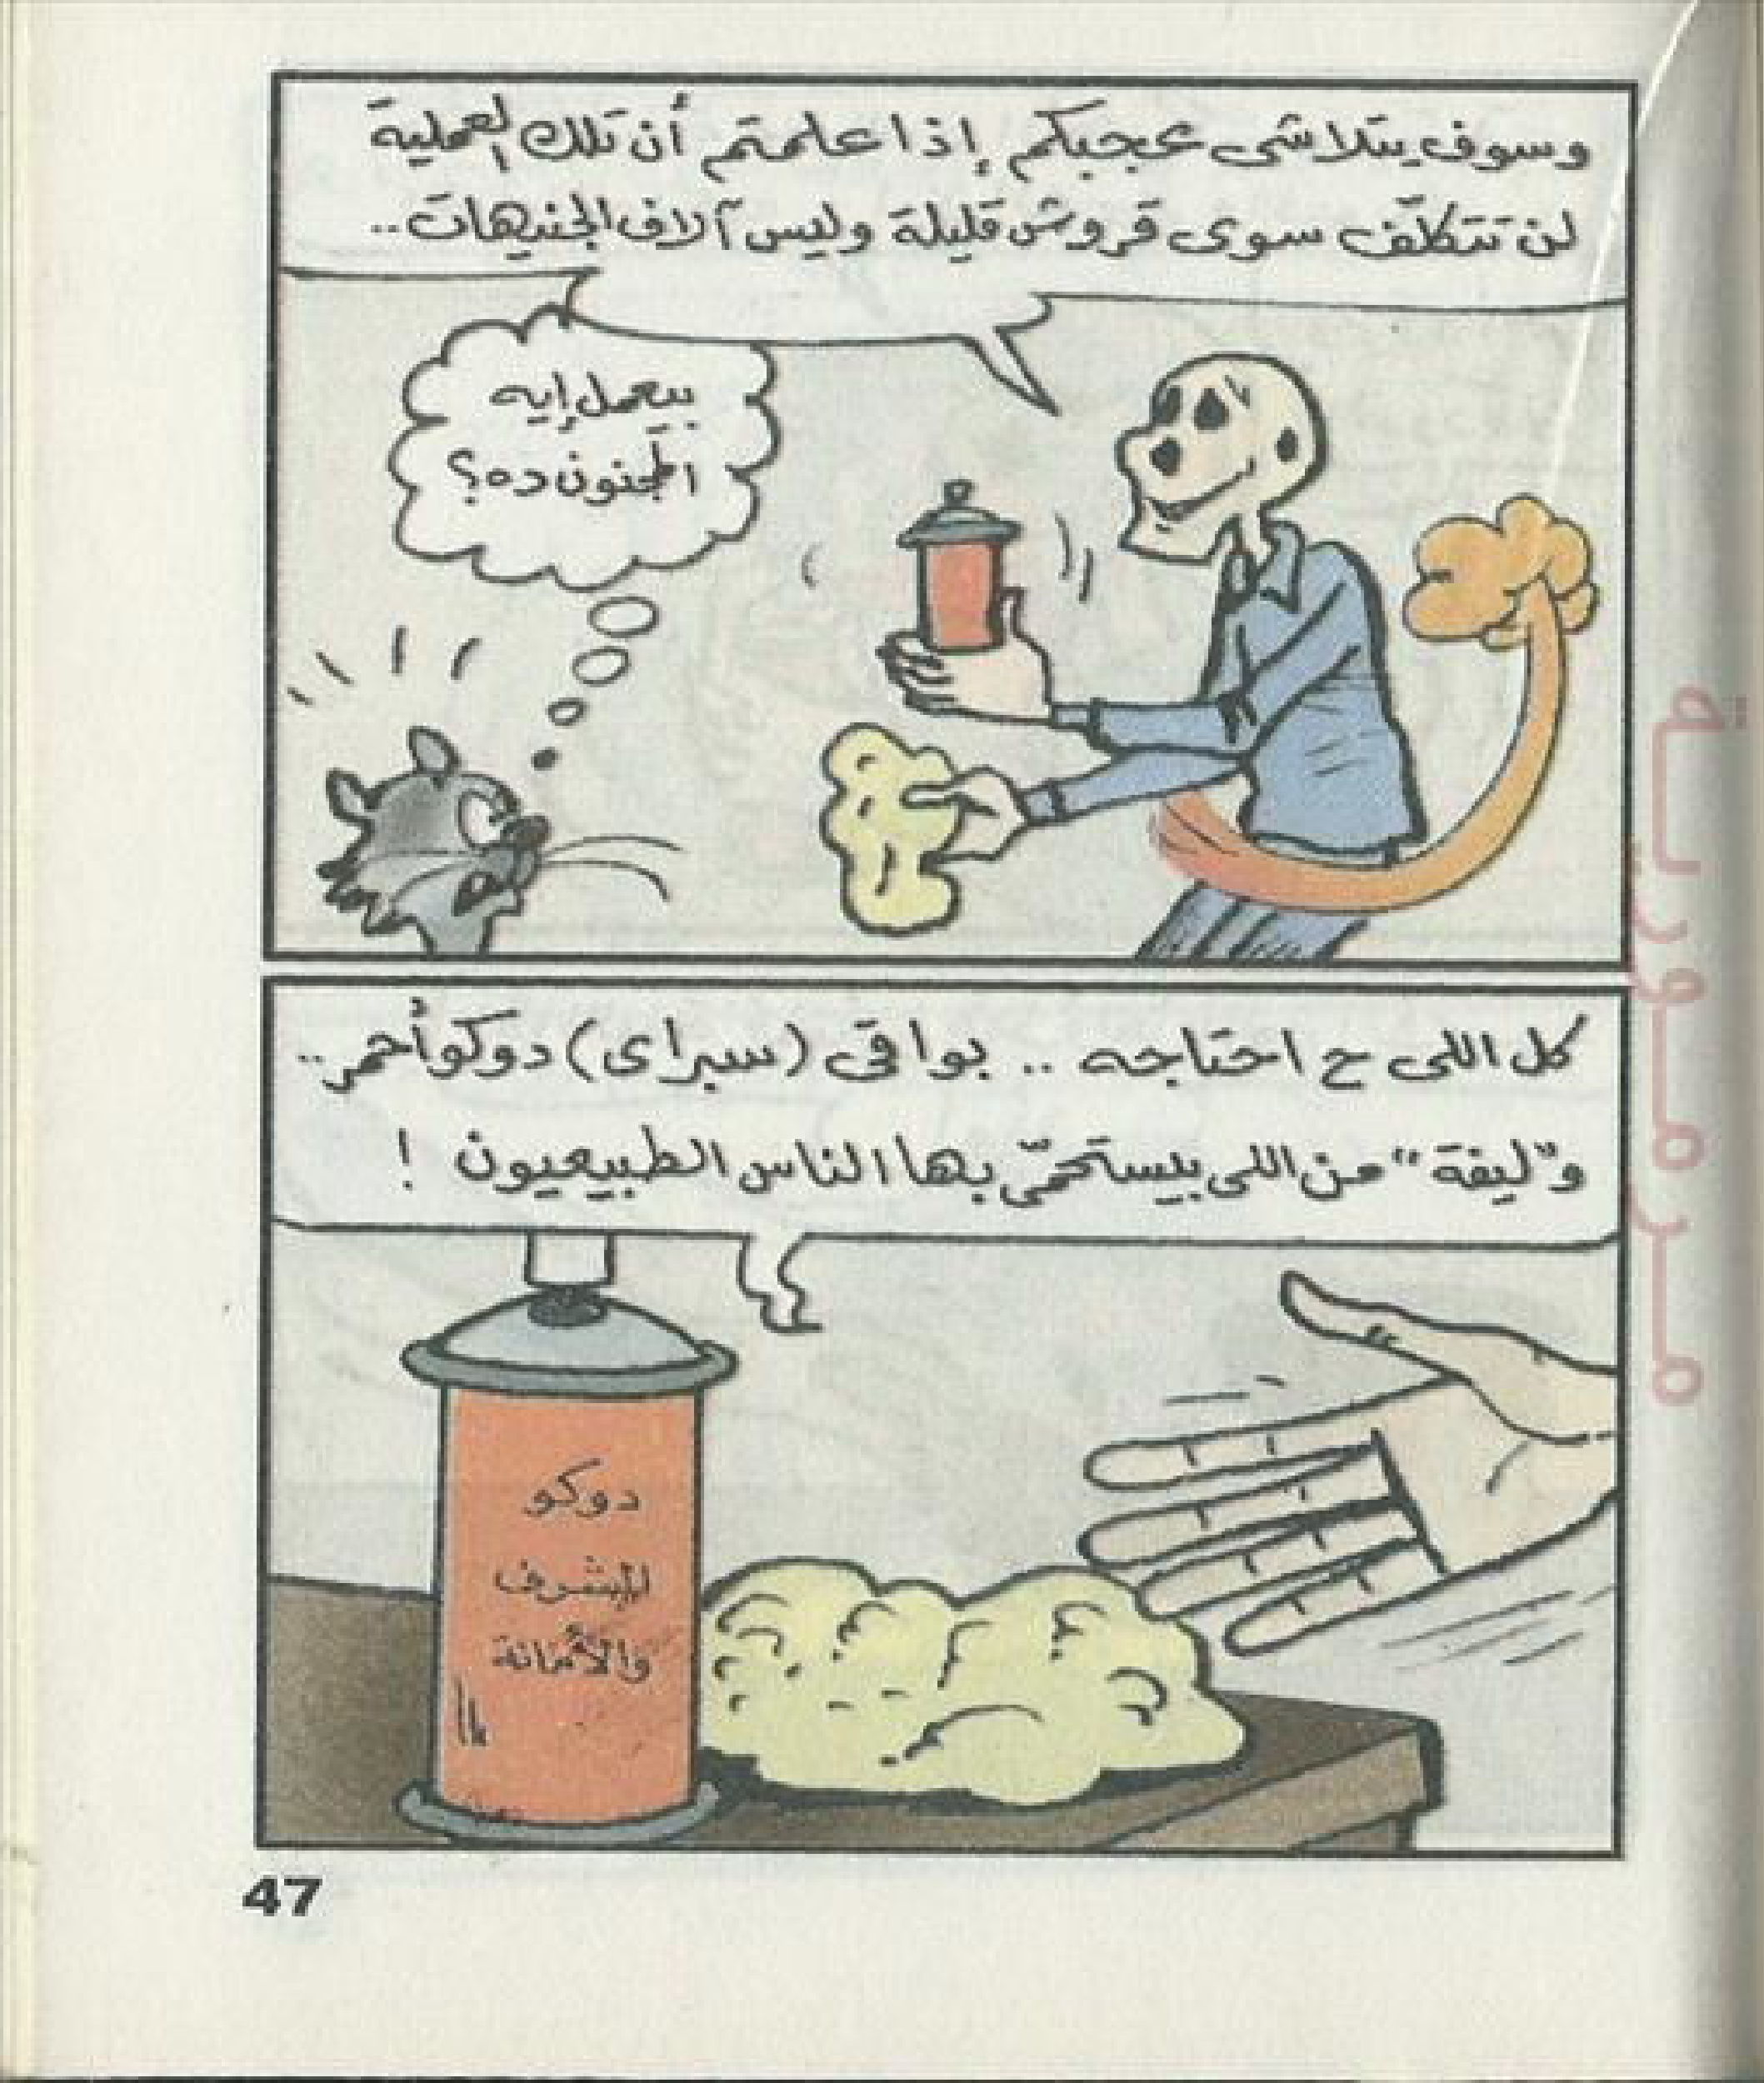 وسوف يتلاشى عجبكم إذا علمتم أن تلك العملية
لن تتكلّف سوى قروش قليلة وليس آلاف الجنيهات..
بيعمل إيه
المجنون ده؟
كل اللى ح احتاجه .. بواقى (سبراى) دوكو أحمر..
و"ليفة" من اللى بيستحمّى بها الناس الطبيعيون !
دوكو
الشرف
والأمانة
47
مرمورية